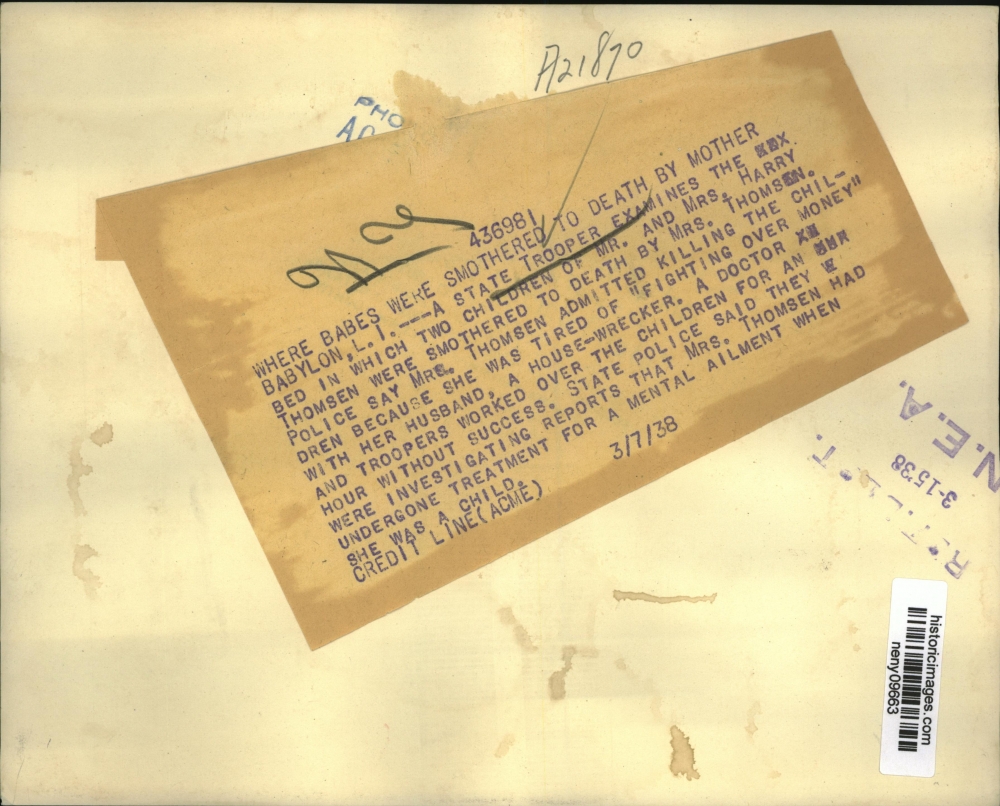 A21870
PHO
AC
N.Y.
436981
WHERE BABES WERE SMOTHERED TO DEATH BY MOTHER
BABYLON, L.I.---A STATE TROOPER EXAMINES THE
BED IN WHICH TWO CHILDREN OF MR. AND MRS. HARRY
THOMSEN WERE SMOTHERED TO DEATH BY MRS. THOMSEN.
POLICE SAY MRS. THOMSEN ADMITTED KILLING THE CHIL-
DREN BECAUSE SHE WAS TIRED OF "FIGHTING OVER MONEY"
WITH HER HUSBAND, A HOUSE-WRECKER. A DOCTOR
AND TROOPERS WORKED OVER THE CHILDREN FOR AN
HOUR WITHOUT SUCCESS. STATE POLICE SAID THEY
WERE INVESTIGATING REPORTS THAT MRS. THOMSEN HAD
UNDERGONE TREATMENT FOR A MENTAL AILMENT WHEN
SHE WAS A CHILD.
CREDIT LINE(ACME) 3/7/38
N.E.A.
3-15'38
historicimages.com
neny09663